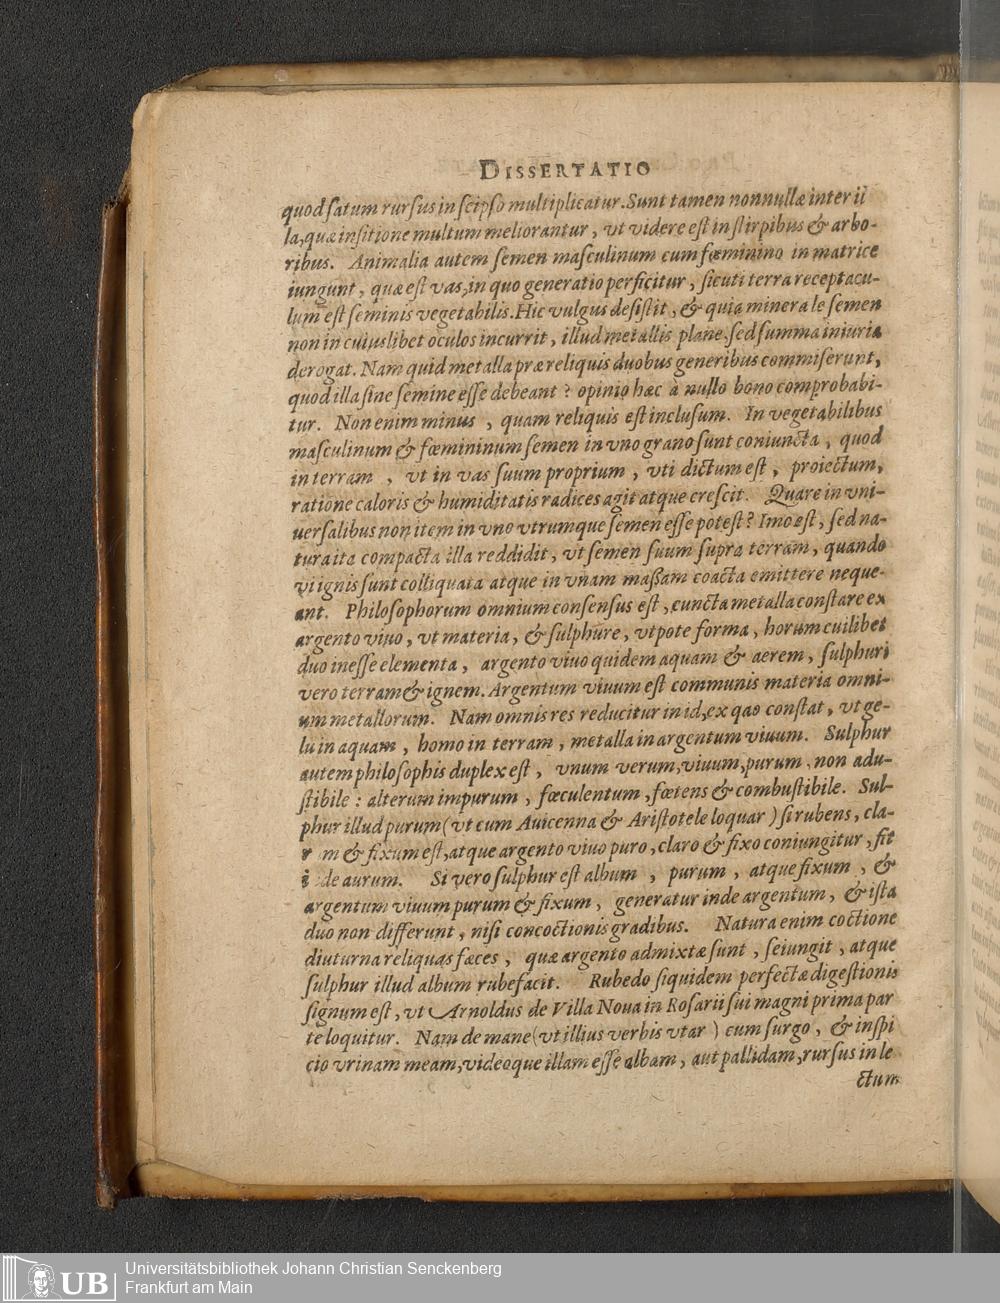 DISSERTATIO
quod satum rursus in seipso multiplicatur. Sunt tamen nonnulla inter il
la, quæ insitione multum meliorantur, vt videre est in stirpibus & arbo-
ribus. Animalia autem semen masculinum cum fœminino in matrice
iungunt, quæ est vas, in quo generatio perficitur, sicuti terra receptacu-
lum est seminis vegetabilis. Hic vulgus desistit, & quia minerale semen
non in cuiuslibet oculos incurrit, illud metallis plane, sed summa iniuria
derogat. Nam quid metalla præ reliquis duobus generibus commiserunt,
quod illa sine semine esse debeant? opinio hæc à nullo bono comprobabi-
tur. Non enim minus, quam reliquis est inclusum. In vegetabilibus
masculinum & fœmininum semen in vno grano sunt coniuncta, quod
in terram, vt in vas suum proprium, vti dictum est, proiectum,
ratione caloris & humiditatis radices agit atque crescit. Quare in vni-
uersalibus non item in vno vtrumque semen esse potest? Imo est, sed na-
tura ita compacta illa reddidit, vt semen suum supra terram, quando
vi ignis sunt colliquata atque in vnam massam coacta emittere neque-
ant. Philosophorum omnium consensus est, cuncta metalla constare ex
argento viuo, vt materia, & sulphure, vtpote forma, horum cuilibet
duo inesse elementa, argento viuo quidem aquam & aerem, sulphuri
vero terram & ignem. Argentum viuum est communis materia omni-
um metallorum. Nam omnis res reducitur in id, ex quo constat, vt ge-
lu in aquam, homo in terram, metalla in argentum viuum. Sulphur
autem philosophis duplex est, vnum verum, viuum, purum, non adu-
stibile: alterum impurum, fœculentum, fœtens & combustibile. Sul-
phur illud purum (vt cum Auicenna & Aristotele loquar) si rubens, cla-
r m & fixum est, atque argento viuo puro, claro & fixo coniungitur, fit
i de aurum. Si vero sulphur est album, purum, atque fixum, &
argentum viuum purum & fixum, generatur inde argentum, & ista
duo non differunt, nisi concoctionis gradibus. Natura enim coctione
diuturna reliquas fæces, quæ argento admixtæ sunt, seiungit, atque
sulphur illud album rubefacit. Rubedo siquidem perfectæ digestionis
signum est, vt Arnoldus de Villa Noua in Rosarii sui magni prima par
te loquitur. Nam de mane (vt illius verbis vtar) cum surgo, & inspi
cio vrinam meam, videoque illam esse albam, aut pallidam, rursus in le
ctum
UB
Universitätsbibliothek Johann Christian Senckenberg
Frankfurt am Main